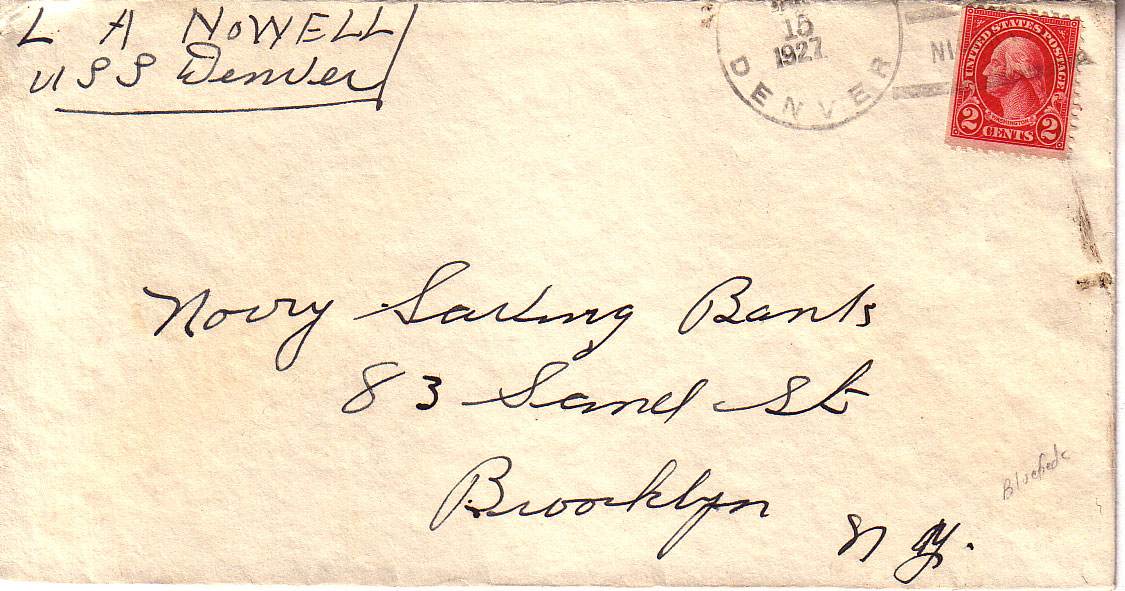 L A NOWELL
USS Denver
15
1927
DENVER
NI
UNITED STATES POSTAGE
WASHINGTON
2 CENTS 2
Navy Saving Banks
83 Sand St
Brooklyn
N Y.